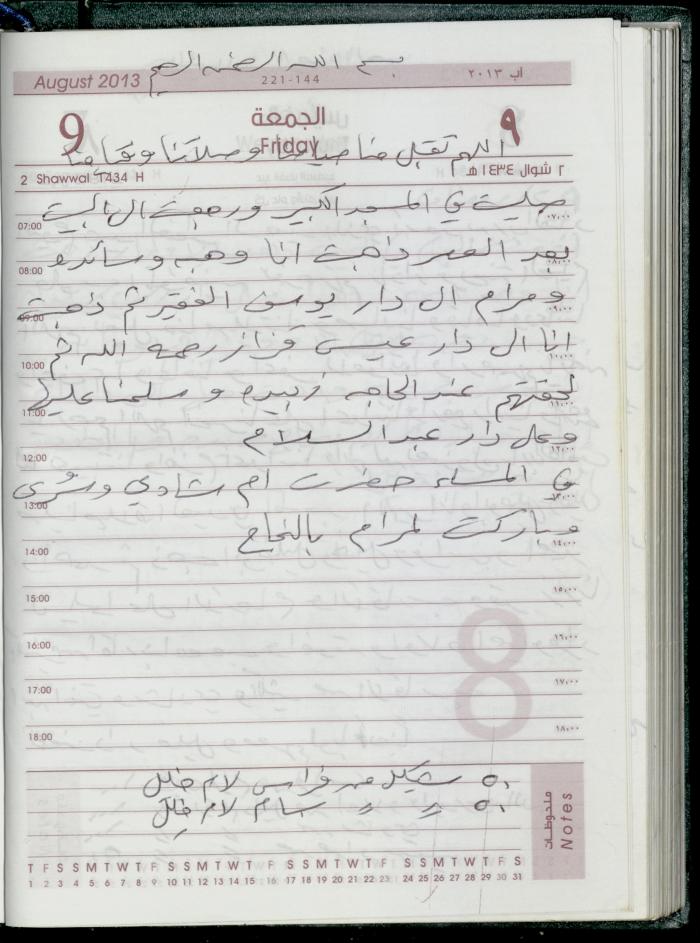 بسم الله الرحمن الرحيم
August 2013
221-144
آب ٢٠١٣
9
الجمعة
Friday
٩
اللهم تقبل منا صيامنا وصلاتنا وقيامنا
2 Shawwal 1434 H
٢ شوال ١٤٣٤ هـ
صليت في المسجد الكبير ورجعت ال البيت
07:00 ٠٧:٠٠
بعد العصر ذهبت انا وهبه وسائده
08:00 ٠٨:٠٠
ومرام ال دار يوسف الفقير ثم ذهبت
09:00 ٠٩:٠٠
انا ال دار عيسى قزاز رحمه الله ثم
10:00 ١٠:٠٠
لحقتهم عند الحاجه زبيده وسلمنا عليها
11:00 ١١:٠٠
وعلى دار عبد السلام
12:00 ١٢:٠٠
في المساء حضرت ام شادي وسرى
13:00 ١٣:٠٠
وباركت لمرام بالنجاح
14:00 ١٤:٠٠
15:00 ١٥:٠٠
16:00 ١٦:٠٠
17:00 ١٧:٠٠
18:00 ١٨:٠٠
٥٠ شيكل من فراس لام خليل
٥٠ = = سام لام خليل
ملحوظات
Notes
T F S S M T W T F S S M T W T F S S M T W T F S S M T W T F S
1 2 3 4 5 6 7 8 9 10 11 12 13 14 15 16 17 18 19 20 21 22 23 24 25 26 27 28 29 30 31